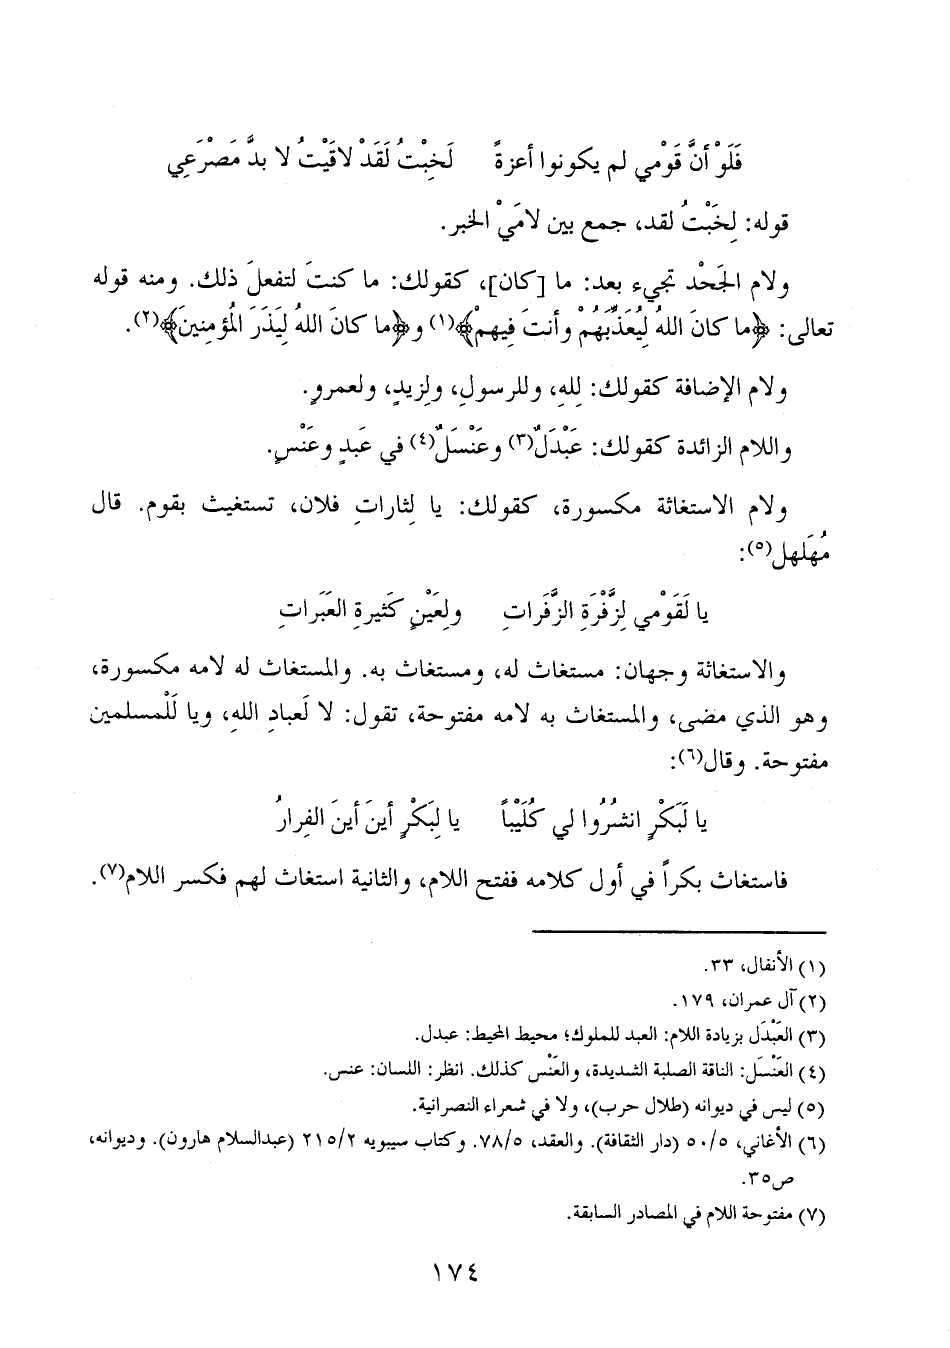 فَلَوْ أنَّ قَوْمي لم يكونوا أعزةً لَخِبْتُ لَقَدْ لاقَيْتُ لا بدَّ مَصْرَعِي
قوله: لِخَبْتُ لقد، جمع بين لامَيْ الخبر.
ولام الجَحْد تجيء بعد: ما [كان]، كقولك: ما كنتَ لتفعلَ ذلك. ومنه قوله
تعالى: ﴿ما كانَ اللهُ لِيُعَذِّبَهُمْ وأنتَ فِيهِمْ﴾(١) و﴿ما كانَ اللهُ لِيَذَرَ المُؤمِنينَ﴾(٢).
ولام الإضافة كقولك: لِلهِ، وللرسولِ، ولِزيدٍ، ولعمروٍ.
واللام الزائدة كقولك: عَبْدَلٌ(٣) وعَنْسَلٌ(٤) في عَبدٍ وعَنْسٍ.
ولام الاستغاثة مكسورة، كقولك: يا لِثاراتِ فلان، تستغيث بقوم. قال
مُهَلهل(٥):
يا لَقَوْمي لِزَّفْرَةِ الزَّفَراتِ ولِعَيْنٍ كَثيرةِ العَبَراتِ
والاستغاثة وجهان: مستغاث له، ومستغاث به. والمستغاث له لامه مكسورة،
وهو الذي مضى، والمستغاث به لامه مفتوحة، تقول: لا لَعبادِ اللهِ، ويا لَلْمسلمين
مفتوحة. وقال(٦):
يا لَبَكْرٍ انشُرُوا لي كُلَيْباً يا لِبَكْرٍ أينَ أينَ الفِرارُ
فاستغاث بكراً في أول كلامه ففتح اللام، والثانية استغاث لهم فكسر اللام(٧).
(١) الأنفال، ٣٣.
(٢) آل عمران، ١٧٩.
(٣) العَبْدَل بزيادة اللام: العبد للملوك؛ محيط المحيط: عبدل.
(٤) العَنْسَل: الناقة الصلبة الشديدة، والعَنْس كذلك. انظر: اللسان: عنس.
(٥) ليس في ديوانه (طلال حرب)، ولا في شعراء النصرانية.
(٦) الأغاني، ٥٠/٥ (دار الثقافة). والعقد، ٧٨/٥. وكتاب سيبويه ٢١٥/٢ (عبدالسلام هارون). وديوانه،
ص٣٥.
(٧) مفتوحة اللام في المصادر السابقة.
١٧٤